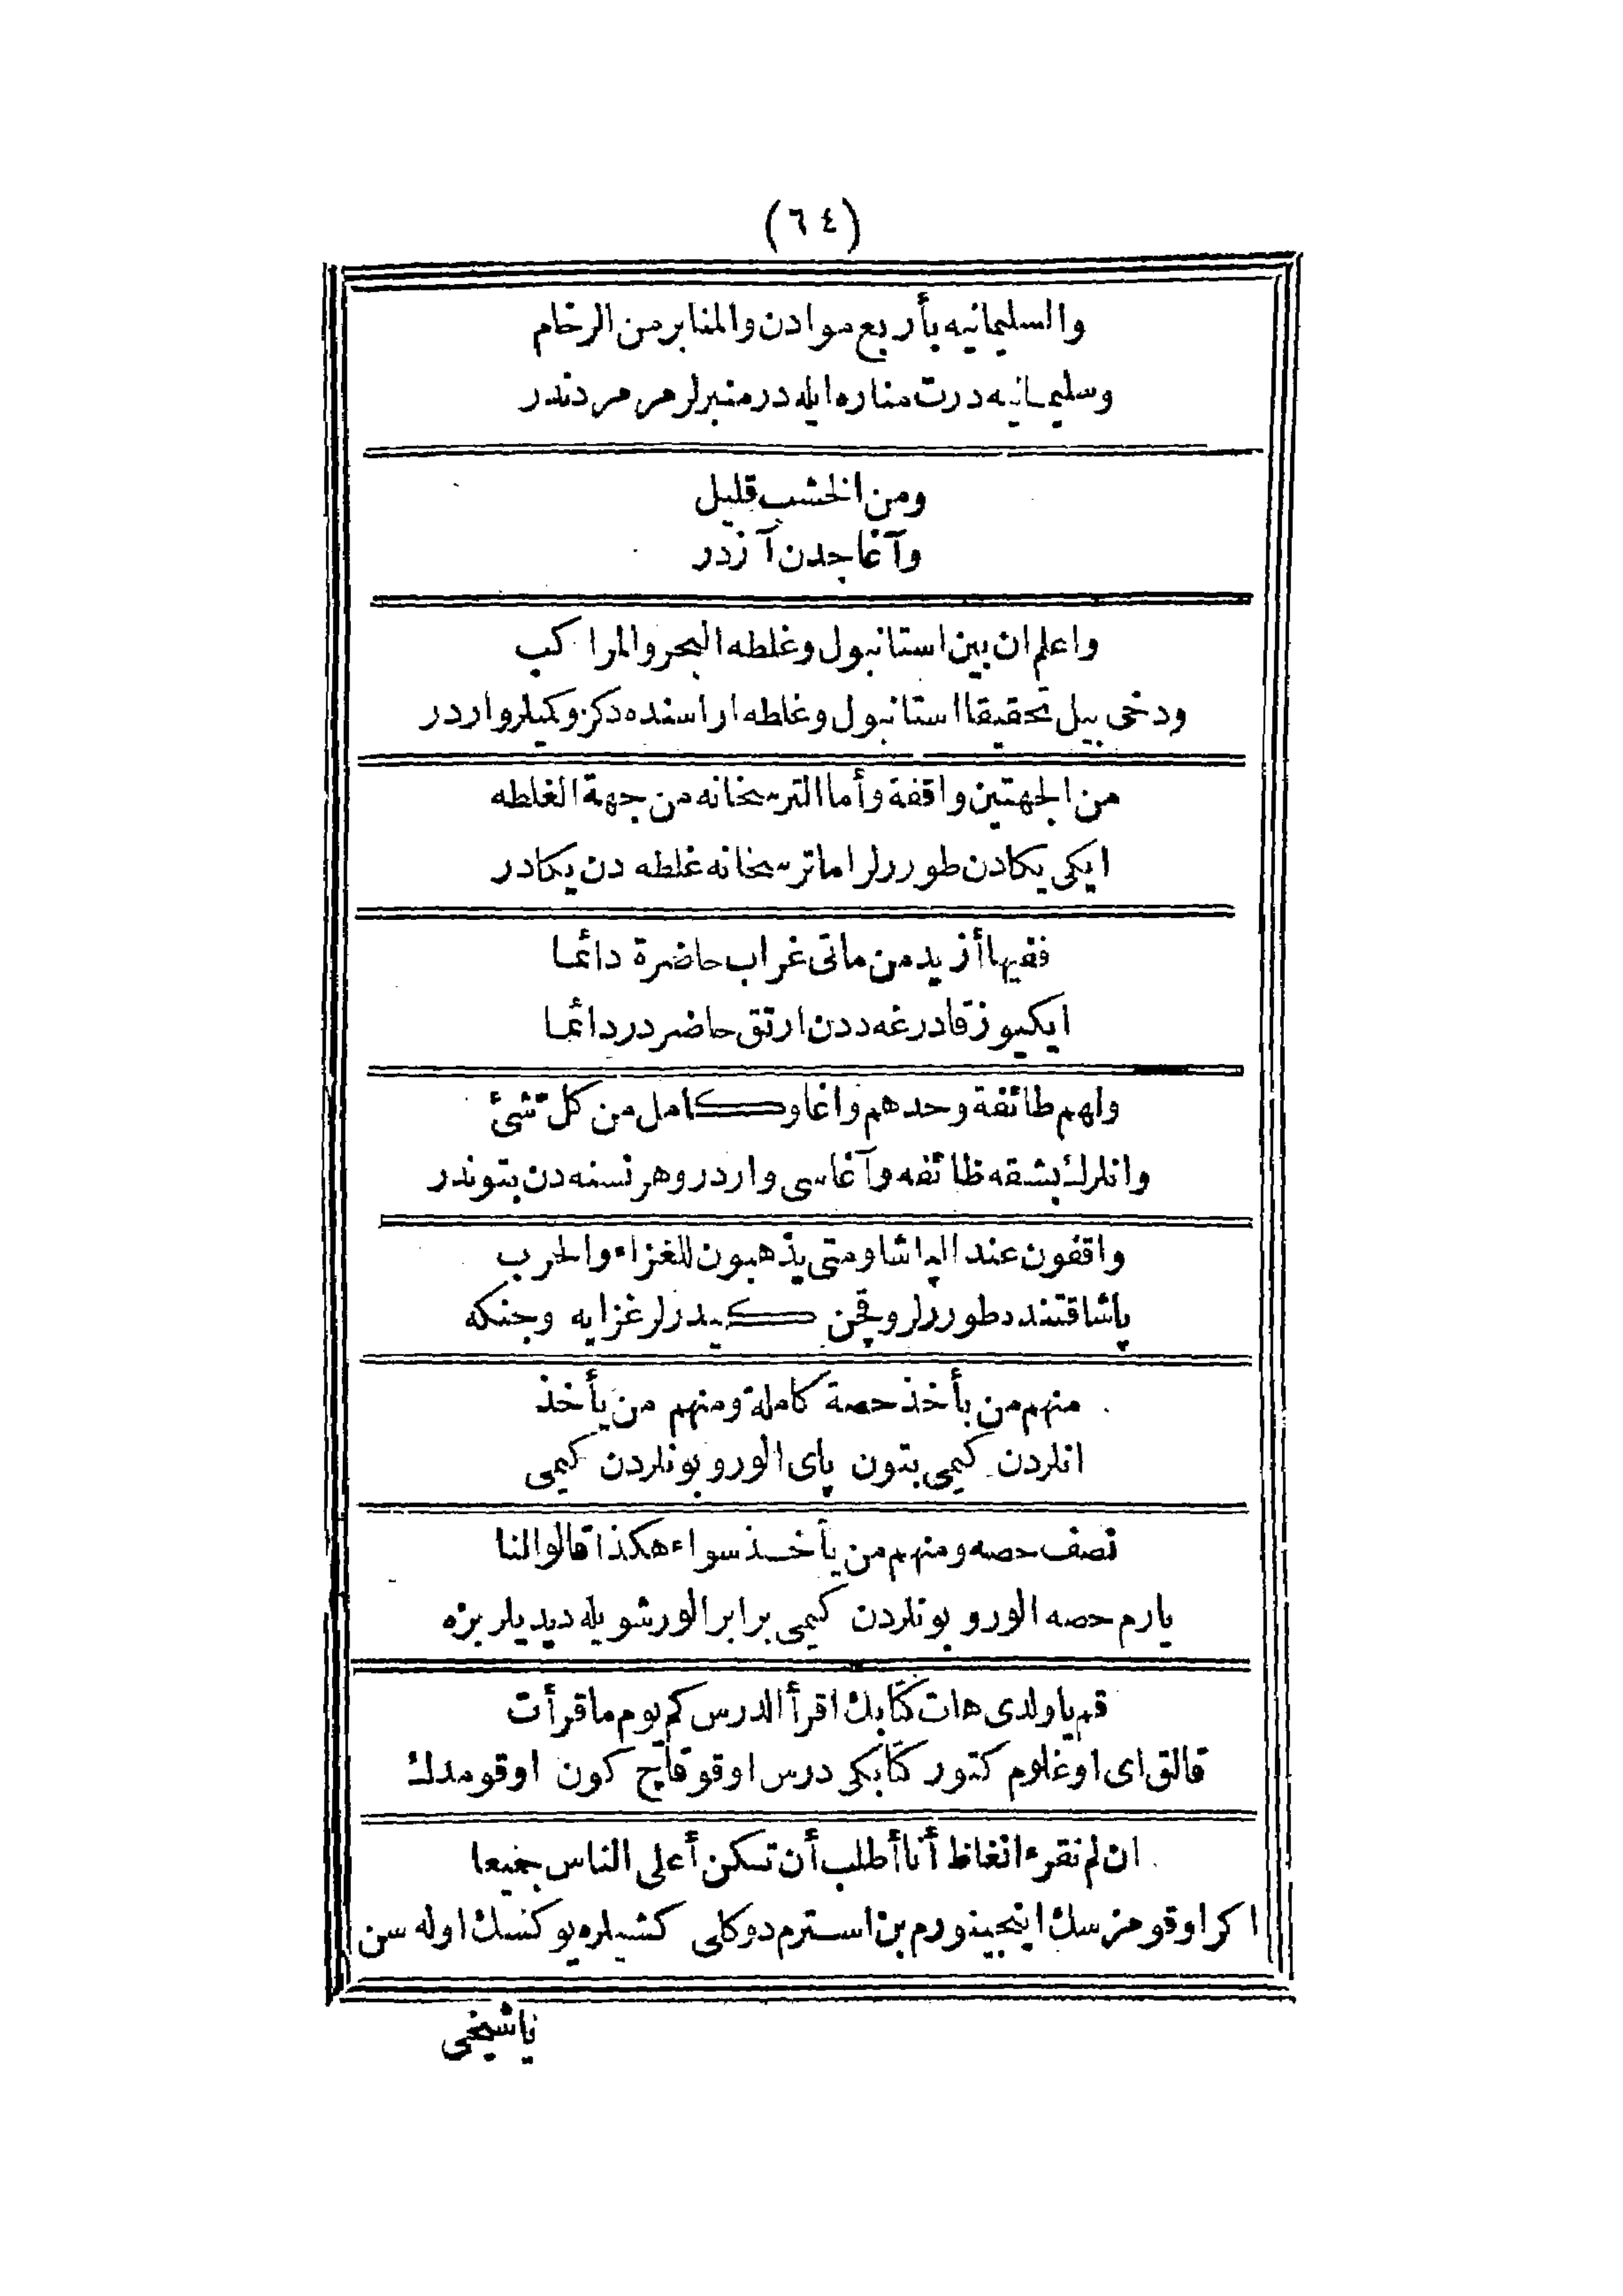 (٦٤)
والسليمانيه بأربع موادن والمنابر من الرخام
وسليمانيه درت مناره ايله در منبرلر مرمردندر
ومن الخشب قليل
وآغاجدن آزدر
واعلم ان بين استانبول وغلطه البحر والمراكب
ودخى بيل تحقيقا استانبول وغلطه اراسنده دكز وكميلر واردر
من الجهتين واقفة وأما الترسخانه من جهة الغلطه
ايكى يكادن طوررلر اما ترسخانه غلطه دن يكادر
ففيها أزيد من ماتى غراب حاضرة دائما
ايكيوز قادرغه ددن ارتق حاضر در دائما
ولهم طائفة وحدهم واغا وكامل من كل شئ
وانلرك بشقه طائفه وآغاسى واردر وهر نسنه دن بتوندر
واقفون عند الپاشا ومتى يذهبون للغزاء والحرب
پاشا قتنده طوررلر وقچن كيدرلر غزايه وجنكه
منهم من يأخذ حصة كاملة ومنهم من يأخذ
انلردن كيمى بتون پاى الور و بونلردن كيمى
نصف حصه ومنهم من يأخذ سواء هكذا قالوا لنا
يارم حصه الور و بونلردن كيمى برابر الور شويله ديديلر بزه
قم يا ولدى هات كتابك اقرأ الدرس كم يوم ما قرأت
قالق اى اوغلوم كتور كتابكى درس اوقو قاچ كون اوقومدك
ان لم تقرء انغاظ أنا أطلب أن تسكن أعلى الناس جميعا
اكر اوقومزسك اينجينورم بن استرم دوكلى كشيلره يوكسك اوله سن
ياشيخى